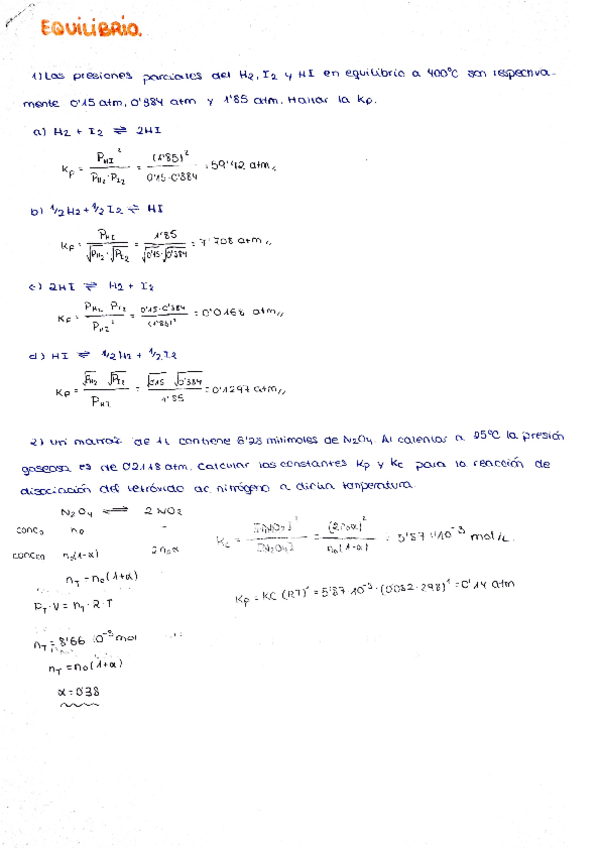 EQUILIBRIO.
1) Las presiones parciales del H2, I2 y HI en equilibrio a 400ºC son respectiva-
mente 0'15 atm, 0'384 atm y 1'85 atm. Hallar la Kp.
a) H2 + I2 ⇌ 2HI
Kp = P_HI² / P_H2·P_I2 = (1'85)² / 0'15·0'384 = 59'42 atm,,
b) 1/2 H2 + 1/2 I2 ⇌ HI
Kp = P_HI / √P_H2·√P_I2 = 1'85 / √0'15·√0'384 = 7'708 atm,,
c) 2HI ⇌ H2 + I2
Kp = P_H2 P_I2 / P_HI² = 0'15·0'384 / (1'85)² = 0'0168 atm,,
d) HI ⇌ 1/2 H2 + 1/2 I2
Kp = √P_H2 √P_I2 / P_HI = √0'15 √0'384 / 1'85 = 0'1297 atm,,
2) Un matraz de 1L contiene 6'28 milimoles de N2O4. Al calentar a 25ºC la presión
gaseosa es de 0'2118 atm. Calcular las constantes Kp y Kc para la reacción de
disociación del tetróxido de nitrógeno a dicha temperatura.
N2O4 ⇌ 2NO2
n0 -
n0(1-α) 2n0α
Kc = [NO2]² / [N2O4] = (2n0α)² / n0(1-α) = 5'87·10⁻³ mol/L.
nT = n0(1+α)
PT·V = nT·R·T
Kp = KC (RT)¹ = 5'87·10⁻³·(0'082·298)¹ = 0'14 atm
nT = 8'66·10⁻³ mol
nT = n0(1+α)
α = 0'38